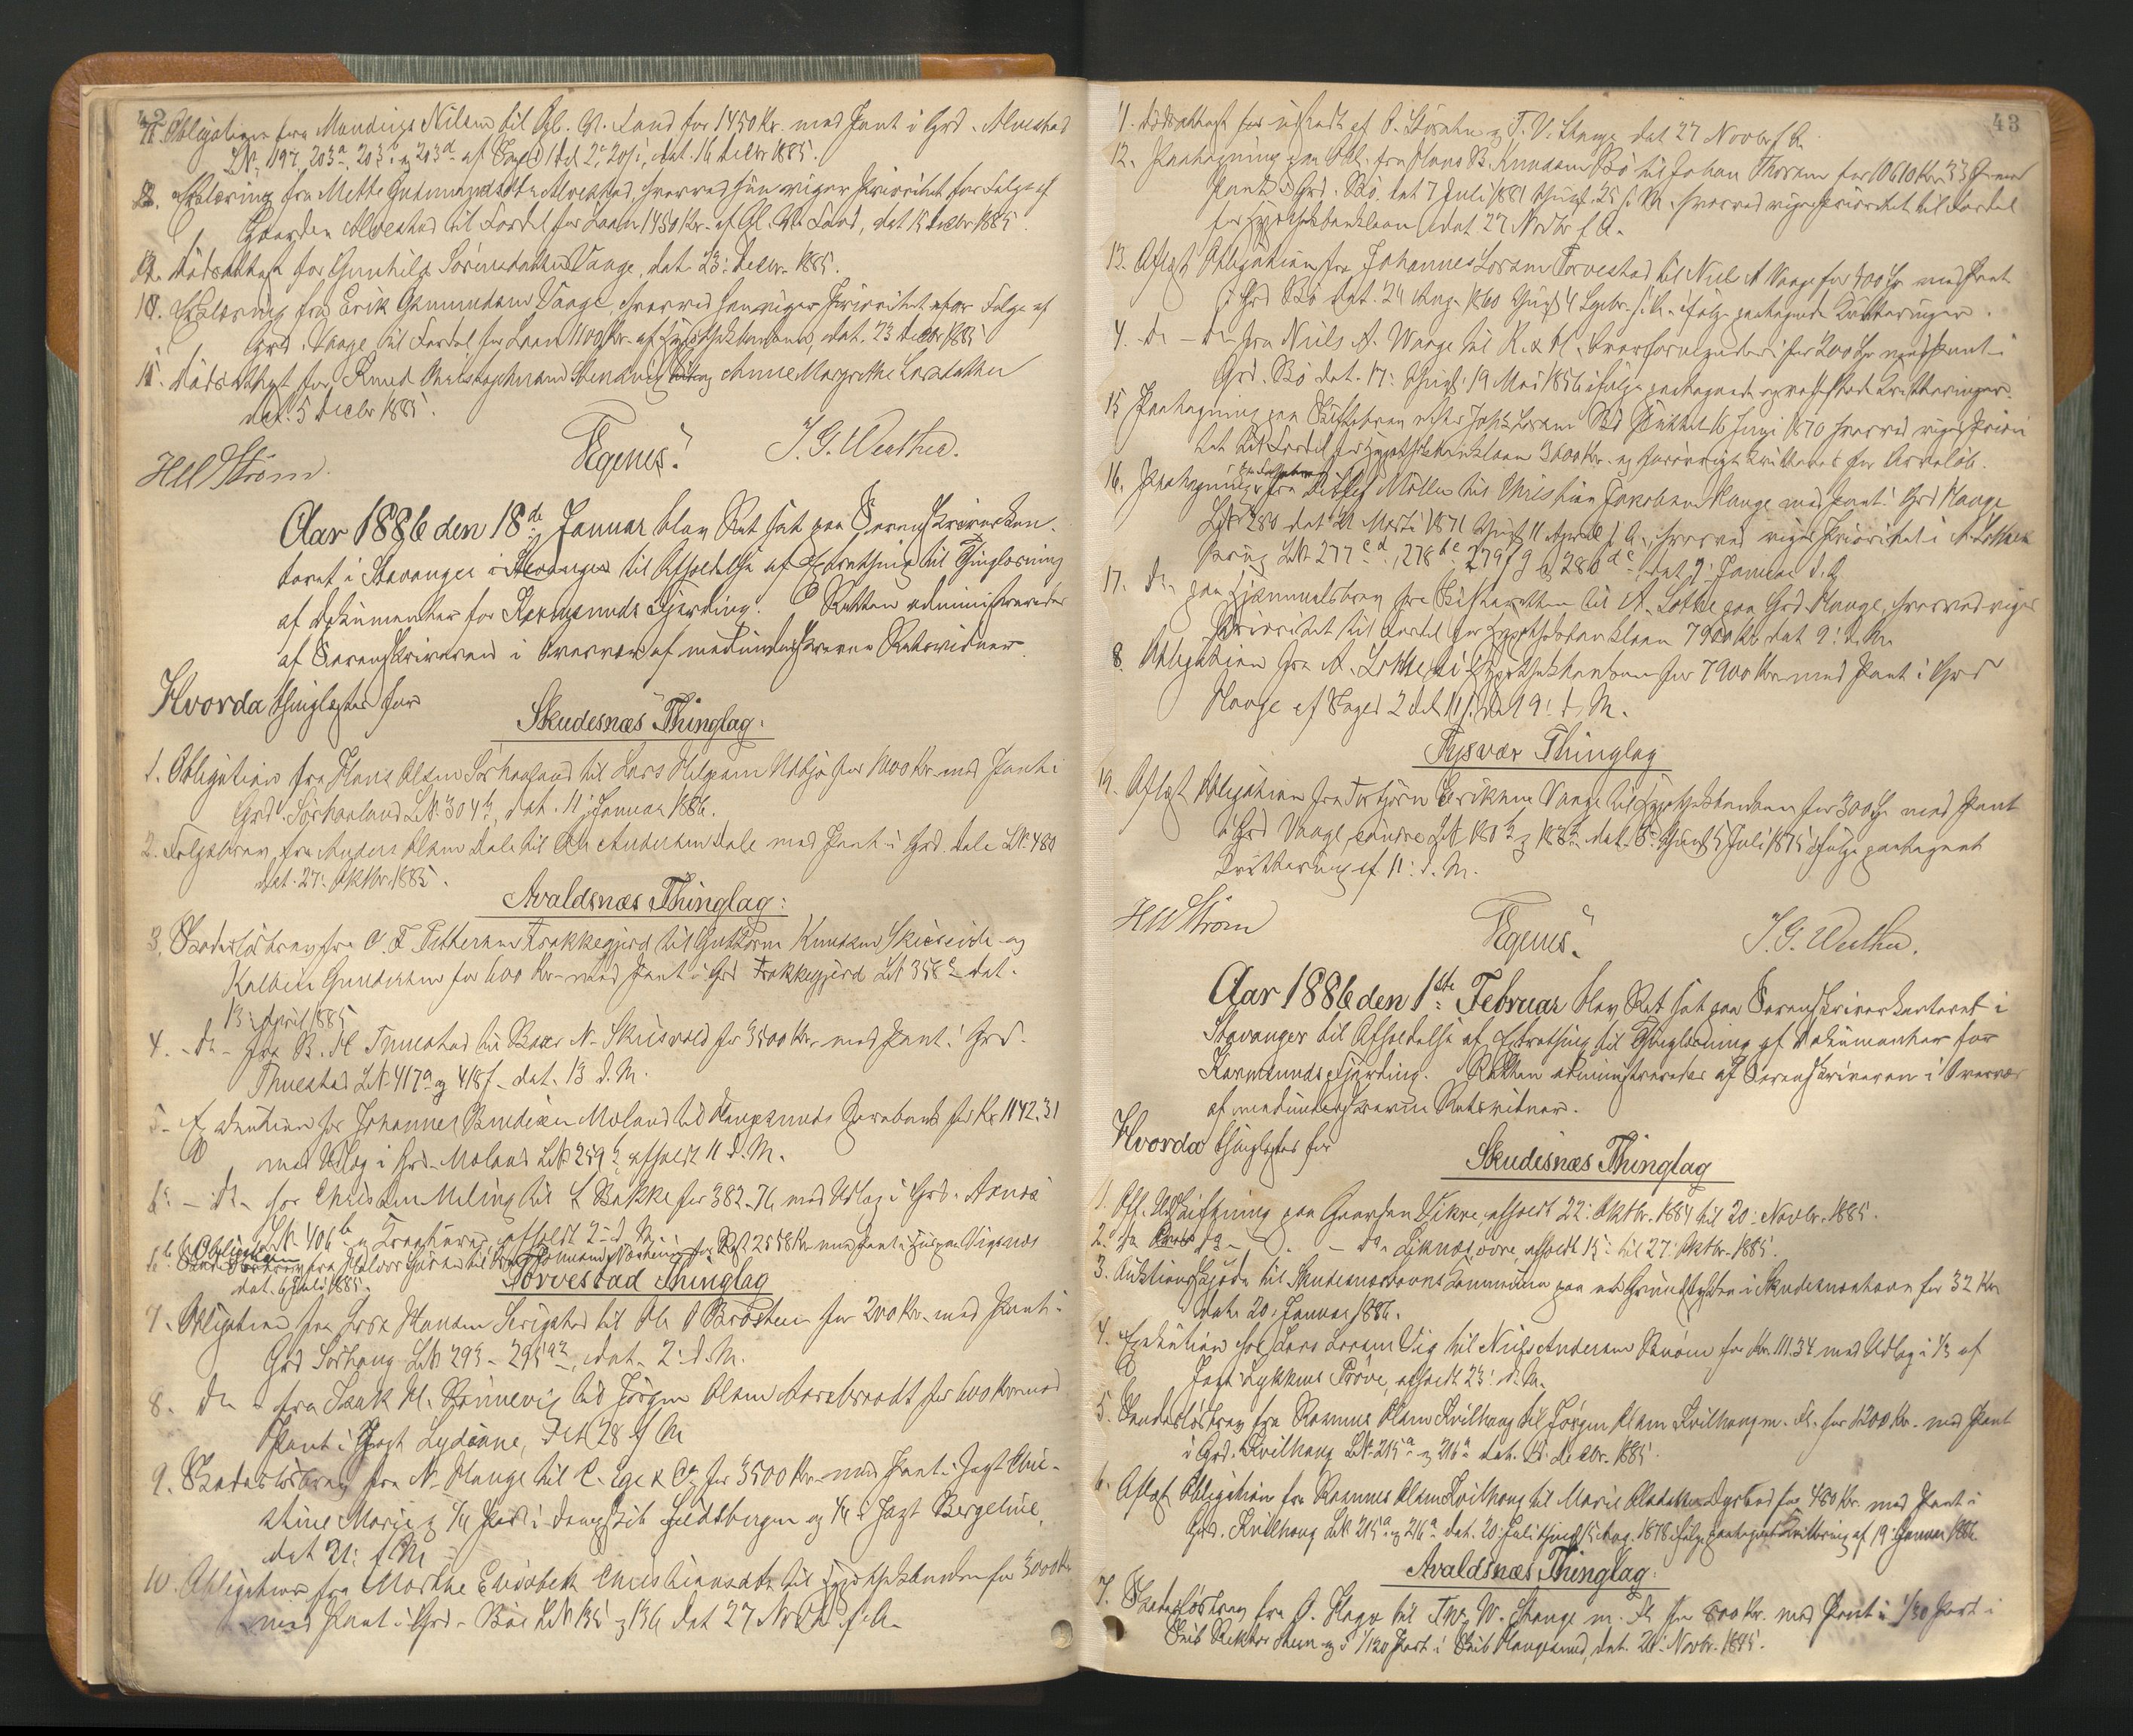 42
Obligation fra Mandius Nilsen til Gbl. Gl. Lund for 1450 Kr. med Pant i Grd. Alvestad
LN: 197, 203a, 203c og 203d af Skyld 1 Del 2: 20/: dat. 16 Decbr 1885.
Erklæring fra Mette Gudmundsdtr. Alvestad, hvorved hun viger Prioritet for Folge af
Gaarden Alvestad til Fordel for Laan 1450 Kr. af Gl. Gl. Lund, dat 15 Decbr 1885.
Dødsattest for Gunhild Sørensdatter Vaage, dat. 23: Decbr. 1885.
10. Erklæring fra Erik Gamundsen Vaage, hvorved han viger Prioritet efter Folge af
Grd. Vaage til Fordel for Laan 1100 Kr. af Hypothekbanken, dat. 23 Decbr 1885
11. Dødsattest for Knud og Anne Margrethe Larsdatter
dat. 5 Decbr 1885.
HW Strøm. Egenes. T. G. Werthea.
Aar 1886 den 18de Januar blev Ret sat paa Sorenskriverkon-
toret i Stavanger til Afholdelse af Extrathing til Thinglæsning
af Dokumenter for Karmsunds Fjerding. Retten administreredes
af Sorenskriveren i Overvær af medunderskrevne Retsvidner.
Hvorda thinglæstes for
Skudesnæs Thinglag:
1. Obligation fra Hans Olsen Sørhaaland til Lars Helgesen Udbjø for 1000 Kr. med Pant i
Grd. Sørhaaland LN: 304b, dat. 11: Januar 1886.
2. Folgebrev fra Anders Olsen Dale til Ole Andersen Dale med Pant i Grd. Dale LN: 480
dat. 27: Oktbr. 1885.
Avaldsnæs Thinglag:
3. Skadesløsbrev fra C. F. Pettersen Trækkegjerd til Guttorm Knudsen Skeiseide og
Kolbein Gundersen for 600 Kr. med Pant i Grd. Trækkegjerd LN 358c dat.
13: April 1885
4. - Do - fra B. H. Tuestad til Baar N. Skeisvold for 3500 Kr. med Pant i Grd.
Thuestad LN 417a og 418f - dat. 13 d. M.
5. Exekution hos Johannes Bendixen Moland til Haugesunds Sparebank for Kr. 1142.31
med Udlæg i Grd. Moland LN 259b, afholdt 11 d. M.
6a - Do - hos Christen Meling til L Bakke for 382.76 med Udlæg i Grd.
LN 406b og afholdt 2: d. M.
6b Obligation fra Halvor til for Rest 2558 Kr. med Pant i Vigsnæs
dat. 6 Juli 1885.
Torvestad Thinglag
7. Obligation fra Lars Hansen Serigstad til Ole O Brosten for 200 Kr. med Pant i
Grd Sørhaug LN 293 - 295a2, dat. 2: d. M.
8. Do - fra Isak H. Rønnevig til Jørgen Olsen Aarebrodt for 600 Kr. med
Pant i Jagt Lydiane, dat 28 f M
9. Skadesløsbrev fra N. Hauge til C. Ege & Co. for 3500 Kr. med Pant i Jagt Chri-
stine Marie, 1/4 Part i Dampskib Guldbergen og 1/4 i Jagt Bergeline,
dat 21: f. M.
10. Obligation fra Marthe Elisabeth Christiansdtr til Hypothekbanken for 3000 Kr
med Pant i Grd. Bøe LN 135 og 136 dat 27 Novbr f. A.
43
11. Dødsattest for udstedt af O. Storstein og T. V. Stange dat 27 Novbr f. A.
12. Paategning paa Obl. fra Hans B. Knudsen Bø til Johan Thorsen for 10610 Kr. 33 Øre med
Pant i Grd. Bø dat 7 Juli 1881 thingl. 25 s. M. hvorved viges Prioritet til Fordel
for Hypothekbanklaan dat 27 Novbr f. A.
13. Aflæst Obligation fra Johannes Larsen Torvestad til Niels A Vaage for 400 Spr med Pant
i Grd. Bø dat. 24 Aug. 1860 thingl 4 Septbr. s. A. ifølge paategnede Kvitteringer.
4. Do - Do fra Niels A. Waage til K. & M. Overformynderi for 200 Spr med Pant i
Grd. Bø dat. 17: thingl: 19 Mai 1856 ifølge paategnede og vedheftede Kvitteringer.
15 Paategning paa Skiftebrev efter Johs Larsen Bø sluttet 16 Juni 1870 hvorved viges Priori-
tet til Fordel for Hypothekbanklaan 3000 Kr. og forøvrigt kvitteres for Arvelod.
16. Paategning fra Ditlef Møller til Christian Jakobsen Hauge med Pant i Grd Hauge
LN 280 dat Marts 1871 thingl 11 April s. A., hvorved viges Prioritet i A. Lothe
Børing LN 277c d, 278b c 279f g og 280d e, dat 9: Januar d. A.
17. Do paa Hjemmelsbrev fra Skifteretten til A. Lothe paa Grd. Hauge, hvorved viges
Prioritet til Fordel for Hypothekbanklaan 7900 Kr. dat 9: d. M.
8. Obligation fra A. Lothe til Hypothekbanken for 7900 Kr. med Pant i Grd
Hauge af Skyld 2 Dal. 11/: dat 9: d. M.
Tysvær Thinglag
19. Aflæst Obligation fra Torbjørn Eriksen Vaage til Hypothekbanken for 300 Sp. med Pant
i Grd Vaage, søndre LN 180b og 188b dat. 5: thingl 5 Juli 1875 ifølge paategnet
Kvittering af 11: d. M.
HW Strøm Egenes. T. G. Werthea.
Aar 1886 den 1ste Februar blev Ret sat paa Sorenskriverkontoret i
Stavanger til Afholdelse af Extrathing til Thinglæsning af Dokumenter for
Karmsunds Fjerding. Retten administreredes af Sorenskriveren i Overvær
af medunderskrevne Retsvidner.
Hvorda thinglæstes for
Skudesnæs Thinglag
1. Off. Udskiftning paa Gaarden Vikre, afholdt 22: Oktbr. 1884 til 20: Novbr. 1885.
2. Do Do - - Do Liknæs, øvre, afholdt 15: til 27: Oktbr. 1885.
3. Auktionsskjøde til Skudesneshavns Kommune paa et Grundstykke i Skudesneshavn for 32 Kr.
dat. 20: Januar 1886.
4. Exekution hos Lars Larsen Vig til Niels Andersen for Kr. 111.34 med Udlæg i 1/3 af
Jagt Lykkens Prøve, afholdt 23: d. M.
5. Skadesløsbrev fra Rasmus Olsen Kvilhaug til Jørgen Olsen Kvilhaug m. Fl. for 1200 Kr. med Pant
i Grd. Kvilhaug LN: 215a og 216a dat. 15: Decbr. 1885.
6. Aflæst Obligation fra Rasmus Olsen Kvilhaug til Marie Olsdatter Dyrland for 480 Kr. med Pant i
Grd. Kvilhaug LN 215a og 216a dat. 20: Juli thingl 15 Aug. 1878 ifølge paategnet Kvittering af 19: Januar 1886.
Avaldsnæs Thinglag:
7. Skadesløsbrev fra O. Hagø til Tw. W. Stange m. Fl for 800 Kr. med Pant i 1/30 Part i
Skib Rektor Steen og i 1/120 Part i Skib Haugesund, dat. 20: Novbr. 1885.